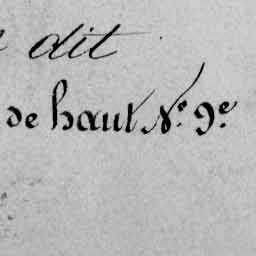 dit
de haut N.º 9.e